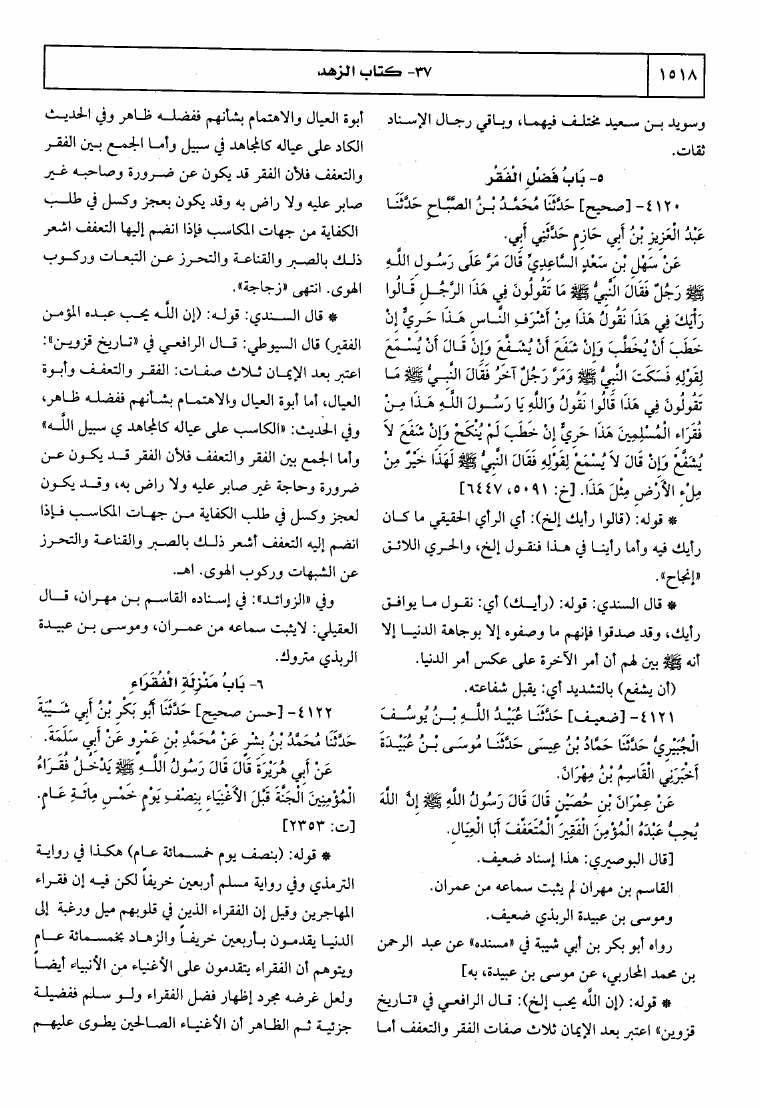 ١٥١٨
٣٧- كتاب الزهد
وسويد بـن سـعيد مختلـف فيهمـا، وبـاقي رجـال الإسـناد
ثقات.
٥- بَابُ فَضْلِ الْفَقْرِ
٤١٢٠- [صحيح] حَدَّثَنَا مُحَمَّدُ بْـنُ الصَّبَّـاحِ حَدَّثَنَـا
عَبْدُ الْعَزِيزِ بْنُ أَبِي حَازِمٍ حَدَّثَنِي أَبِي.
عَنْ سَهْلِ بْنِ سَعْدٍ السَّاعِدِيِّ قَالَ مَرَّ عَلَى رَسُولِ اللَّهِ
ﷺ رَجُلٌ فَقَالَ النَّبِيُّ ﷺ مَا تَقُولُونَ فِي هَذَا الرَّجُـلِ قَـالُوا
رَأْيَكَ فِي هَذَا نَقُولُ هَذَا مِنْ أَشْرَفِ النَّـاسِ هَـذَا حَـرِيٌّ إِنْ
خَطَبَ أَنْ يُخَطَّبَ وَإِنْ شَفَعَ أَنْ يُشَـفَّعَ وَإِنْ قَـالَ أَنْ يُسْـمَعَ
لِقَوْلِهِ فَسَكَتَ النَّبِيُّ ﷺ وَمَرَّ رَجُلٌ آخَرُ فَقَالَ النَّبِـيُّ ﷺ مَـا
تَقُولُونَ فِي هَذَا قَالُوا نَقُولُ وَاللَّهِ يَا رَسُـولَ اللَّـهِ هَـذَا مِـنْ
فُقَرَاءِ الْمُسْلِمِينَ هَذَا حَرِيٌّ إِنْ خَطَبَ لَمْ يُنْكَحْ وَإِنْ شَفَعَ لاَ
يُشَفَّعْ وَإِنْ قَالَ لاَ يُسْمَعْ لِقَوْلِهِ فَقَالَ النَّبِيُّ ﷺ لَهَذَا خَيْرٌ مِنْ
مِلْءِ الأَرْضِ مِثْلَ هَذَا. [خ: ٥٠٩١، ٦٤٤٧]
* قوله: (قالوا رأيك إلخ): أي الرأي الحقيقي ما كـان
رأيك فيه وأما رأينـا في هـذا فنقـول إلخ، والحـري اللائـق
«إنجاح».
* قال السندي: قوله: (رأيـك) أي: نقـول مـا يوافـق
رأيك، وقد صدقوا فإنهم ما وصفوه إلا بوجاهة الدنيـا إلا
أنه ﷺ بين لهم أن أمر الآخرة على عكس أمر الدنيا.
(أن يشفع) بالتشديد أي: يقبل شفاعته.
٤١٢١- [ضعيف] حَدَّثَنَـا عُبَيْـدُ اللَّـهِ بْـنُ يُوسُـفَ
الْجُبَيْرِيُّ حَدَّثَنَا حَمَّادُ بْنُ عِيسَى حَدَّثَنَـا مُوسَـى بْـنُ عُبَيْـدَةَ
أَخْبَرَنِي الْقَاسِمُ بْنُ مِهْرَانَ.
عَنْ عِمْرَانَ بْنِ حُصَيْنٍ قَالَ قَالَ رَسُولُ اللَّهِ ﷺ إِنَّ اللَّهَ
يُحِبُّ عَبْدَهُ الْمُؤْمِنَ الْفَقِيرَ الْمُتَعَفِّفَ أَبَا الْعِيَالِ.
[قال البوصيري: هذا إسناد ضعيف.
القاسم بن مهران لم يثبت سماعه من عمران.
وموسى بن عبيدة الربذي ضعيف.
رواه أبو بكر بن أبي شيبة في «مسنده» عن عبد الرحمن
بن محمد المحاربي، عن موسى بن عبيدة، به]
* قوله: (إن الله يحب إلخ): قـال الرافعي في «تـاريخ
قزوين» اعتبر بعد الإيمان ثلاث صفات الفقر والتعفف أمـا
أبوة العيال والاهتمام بشأنهم ففضلـه ظـاهر وفي الحديـث
الكاد على عياله كالمجاهد في سبيل وأمـا الجمـع بـين الفقـر
والتعفف فلأن الفقر قد يكون عن ضـرورة وصاحبـه غـير
صابر عليه ولا راض به وقد يكون بعجز وكسل في طلـب
الكفاية من جهات المكاسب فإذا انضم إليها التعفف اشعر
ذلـك بالصـبر والقناعـة والتحـرز عـن التبعـات وركـوب
الهوى. انتهى «زجاجة».
* قال السـندي: قولـه: (إن اللَّـه يحـب عبـده المؤمـن
الفقير) قال السيوطي: قـال الرافعي في «تـاريخ قزويـن»:
اعتبر بعد الإيمان ثـلاث صفـات: الفقـر والتعفف وأبـوة
العيال، أما أبوة العيال والاهتمـام بشـأنهم ففضلـه ظـاهر،
وفي الحديث: «الكاسب على عياله كالمجاهد ي سبيل اللَّـه»
وأما الجمع بين الفقر والتعفف فلأن الفقر قـد يكـون عـن
ضرورة وحاجة غير صابر عليه ولا راض به، وقـد يكـون
لعجز وكسل في طلب الكفاية مـن جهـات المكاسـب فـإذا
انضم إليه التعفف أشعر ذلـك بالصـبر والقناعـة والتحـرز
عن الشبهات وركوب الهوى. اهـ.
وفي «الزوائـد»: في إسـناده القاسـم بـن مهـران، قـال
العقيلي: لايثبت سماعه من عمـران، وموسـى بـن عبيـدة
الربذي متروك.
٦- بَابُ مَنْزِلَةِ الْفُقَرَاءِ
٤١٢٢- [حسن صحيح] حَدَّثَنَا أَبُو بَكْرِ بْنُ أَبِي شَـيْبَةَ
حَدَّثَنَا مُحَمَّدُ بْنُ بِشْرٍ عَنْ مُحَمَّدِ بْنِ عَمْرٍو عَنْ أَبِي سَلَمَةَ.
عَنْ أَبِي هُرَيْرَةَ قَالَ قَالَ رَسُولُ اللَّـهِ ﷺ يَدْخُـلُ فُقَـرَاءُ
الْمُؤْمِنِينَ الْجَنَّةَ قَبْلَ الأَغْنِيَاءِ بِنِصْفِ يَوْمٍ خَمْسِ مِائَـةِ عَـامٍ.
[ت: ٢٣٥٣]
* قوله: (بنصف يوم خمسـمائة عـام) هكـذا في روايـة
الترمذي وفي رواية مسلم أربعين خريفـاً لكن فيـه إن فقـراء
المهاجرين وقيل إن الفقراء الذين في قلوبهم ميل ورغبة إلى
الدنيـا يقدمـون بـأربعين خريفـاً والزهـاد بخمسـمائة عـام
ويتوهم أن الفقراء يتقدمون على الأغنياء من الأنبياء أيضـاً
ولعل غرضه مجرد إظهار فضل الفقراء ولـو سـلم ففضيلـة
جزئيـة ثـم الظـاهر أن الأغنيـاء الصـالحين يطـوى عليهـم